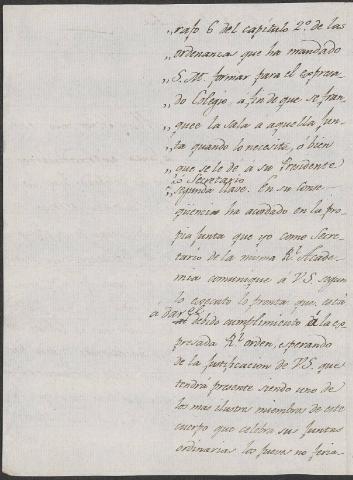 „rafo 6 del capitulo 2.º de las
„ordenanzas que ha mandado
„S. M. formar para el expresa-
„do Colegio, a fin de que se fran-
„quee la sala a aquella jun-
„ta quando lo necesite, o bien
„que se le dé á su Presidente
ó Secretario
„segunda llave. En su conse-
qüencia ha acordado en la pro-
pia junta que yo como Secre-
tario de la misma Rˡ. Acade-
mia comunique á V.S. segun
lo executo lo pronta que está
a dar el
debido cumplimiento á la ex-
presada Rˡ. orden, esperando
de la justificacion de V.S. que
tendrá presente siendo uno de
los mas ilustres miembros de este
cuerpo que celebra sus juntas
ordinarias los jueves no feria-